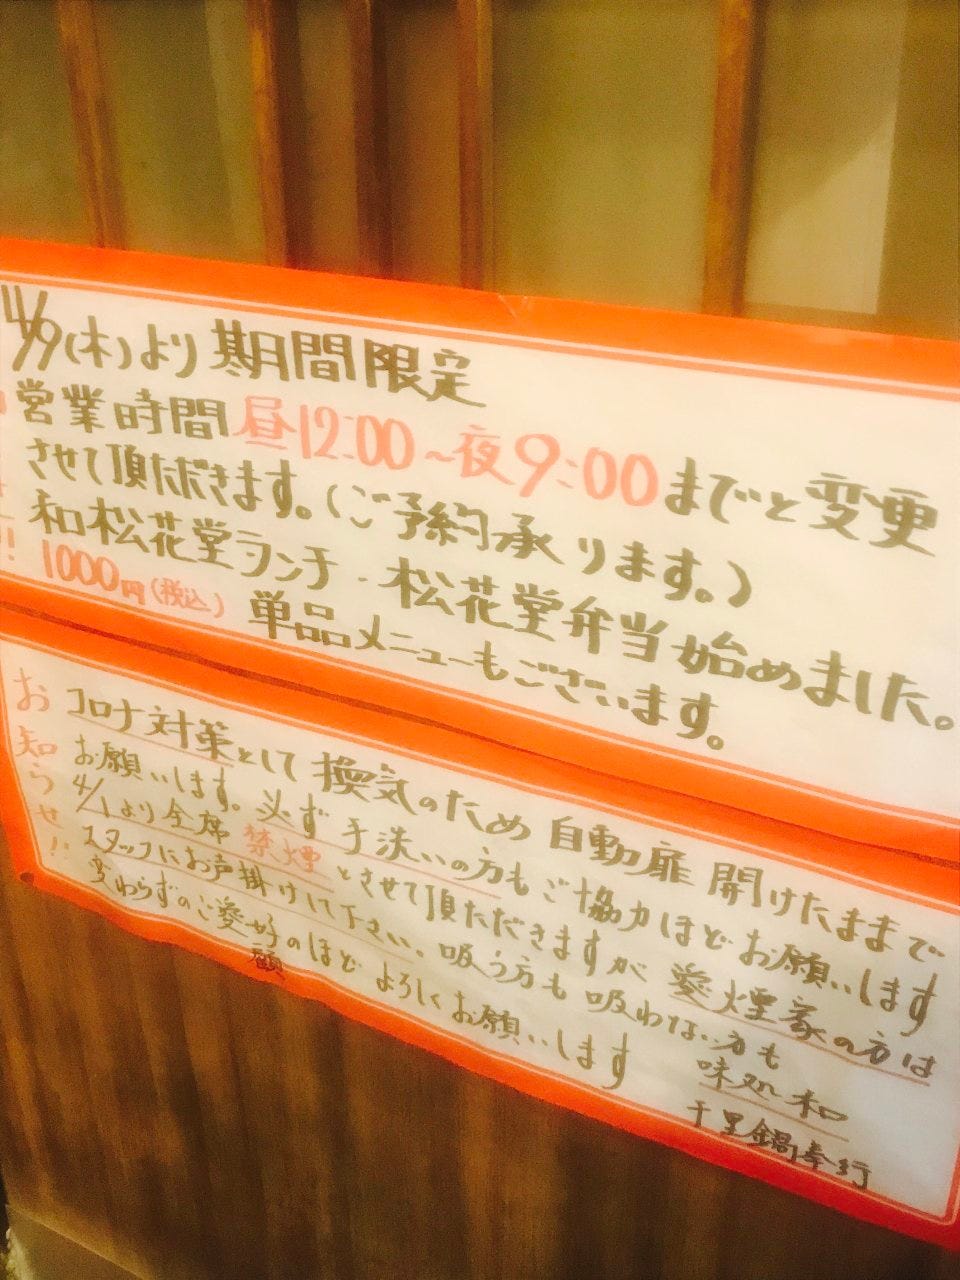 4/9(木)より期間限定
営業時間昼12:00～夜9:00までと変更
させて頂ただきます。(ご予約承ります。)
和松花堂ランチ・松花堂弁当始めました。
1000円(税込) 単品メニューもございます。
お知らせ!!
コロナ対策として換気のため自動扉開けたままで
お願いします。必ず手洗いの方もご協力ほどお願いします
4/1より全席禁煙とさせて頂ただきますが愛煙家の方は
スタッフにお声掛けして下さい。吸う方も吸わない方も
変わらずのご愛好のほどよろしくお願いします
顧
味処 和
千里鍋奉行